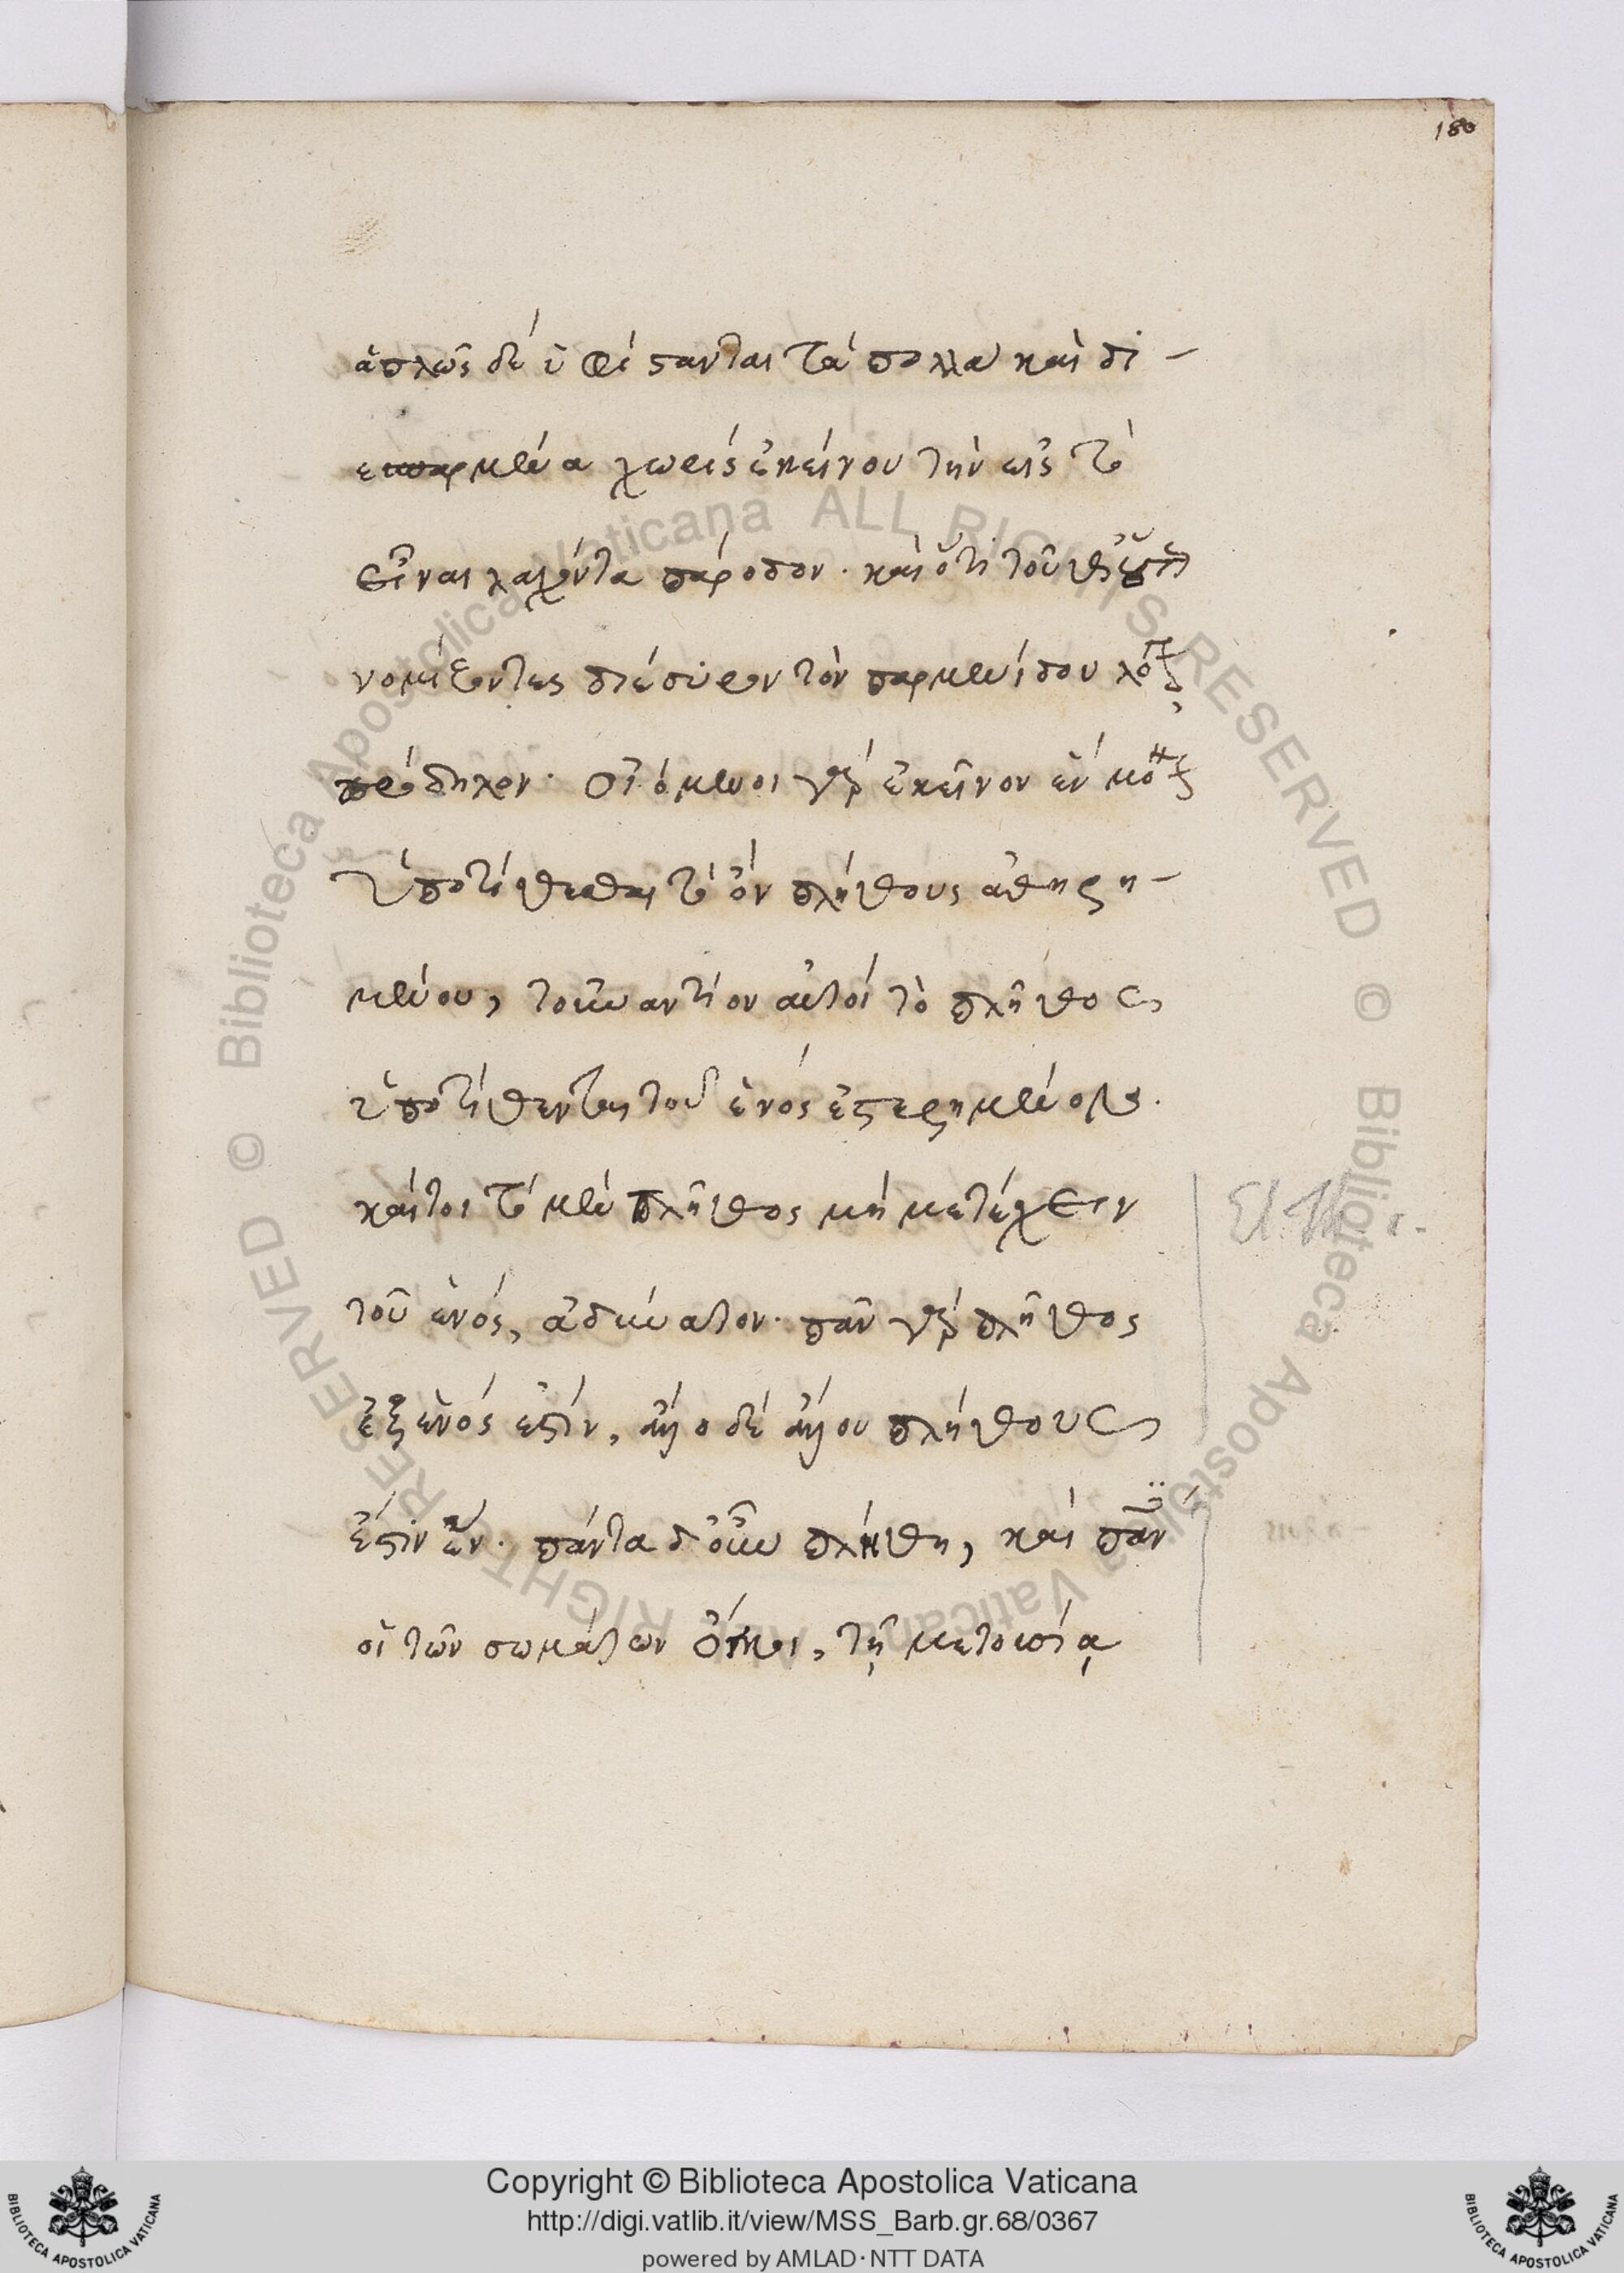 180
ἁπλῶς δὲ ὑφίστανται τὰ πολλὰ καὶ δι-
εσπαρμένα χωρὶς ἐκείνου τὴν εἰς τὸ
εἶναι λαχόντα πάροδον. καὶ ὅτι τοῦθ'
νομίζοντες διέσυρον τὸν παρμενίδου λόγ
πρόδηλον. οἰόμενοι γὰρ ἐκεῖνον ἓν μό
ὑποτίθεσθαι τὸ ὂν πλήθους ἀφῃρη-
μένου, τοὐναντίον αὐτοὶ τὸ πλῆθος
ὑποτίθενται τοῦ ἑνὸς ἐστερημένον.
καίτοι τὸ μὲν πλῆθος μὴ μετέχειν
τοῦ ἑνός, ἀδύνατον. πᾶν γὰρ πλῆθος
ἐξ ἑνός ἐστιν, ἄλλο δὲ ἄλλου πλήθους
ἐστὶν ἕν. πάντα δ' οὖν πλήθη, καὶ πᾶν
οἱ τῶν σωμάτων ὄγκοι, τῇ μετουσίᾳ
Copyright © Biblioteca Apostolica Vaticana
http://digi.vatlib.it/view/MSS_Barb.gr.68/0367
powered by AMLAD·NTT DATA
BIBLIOTECA APOSTOLICA VATICANA
BIBLIOTECA APOSTOLICA VATICANA
© Biblioteca Apostolica Vaticana ALL RIGHTS RESERVED © Biblioteca Apostolica Vaticana ALL RIGHTS RESERVED